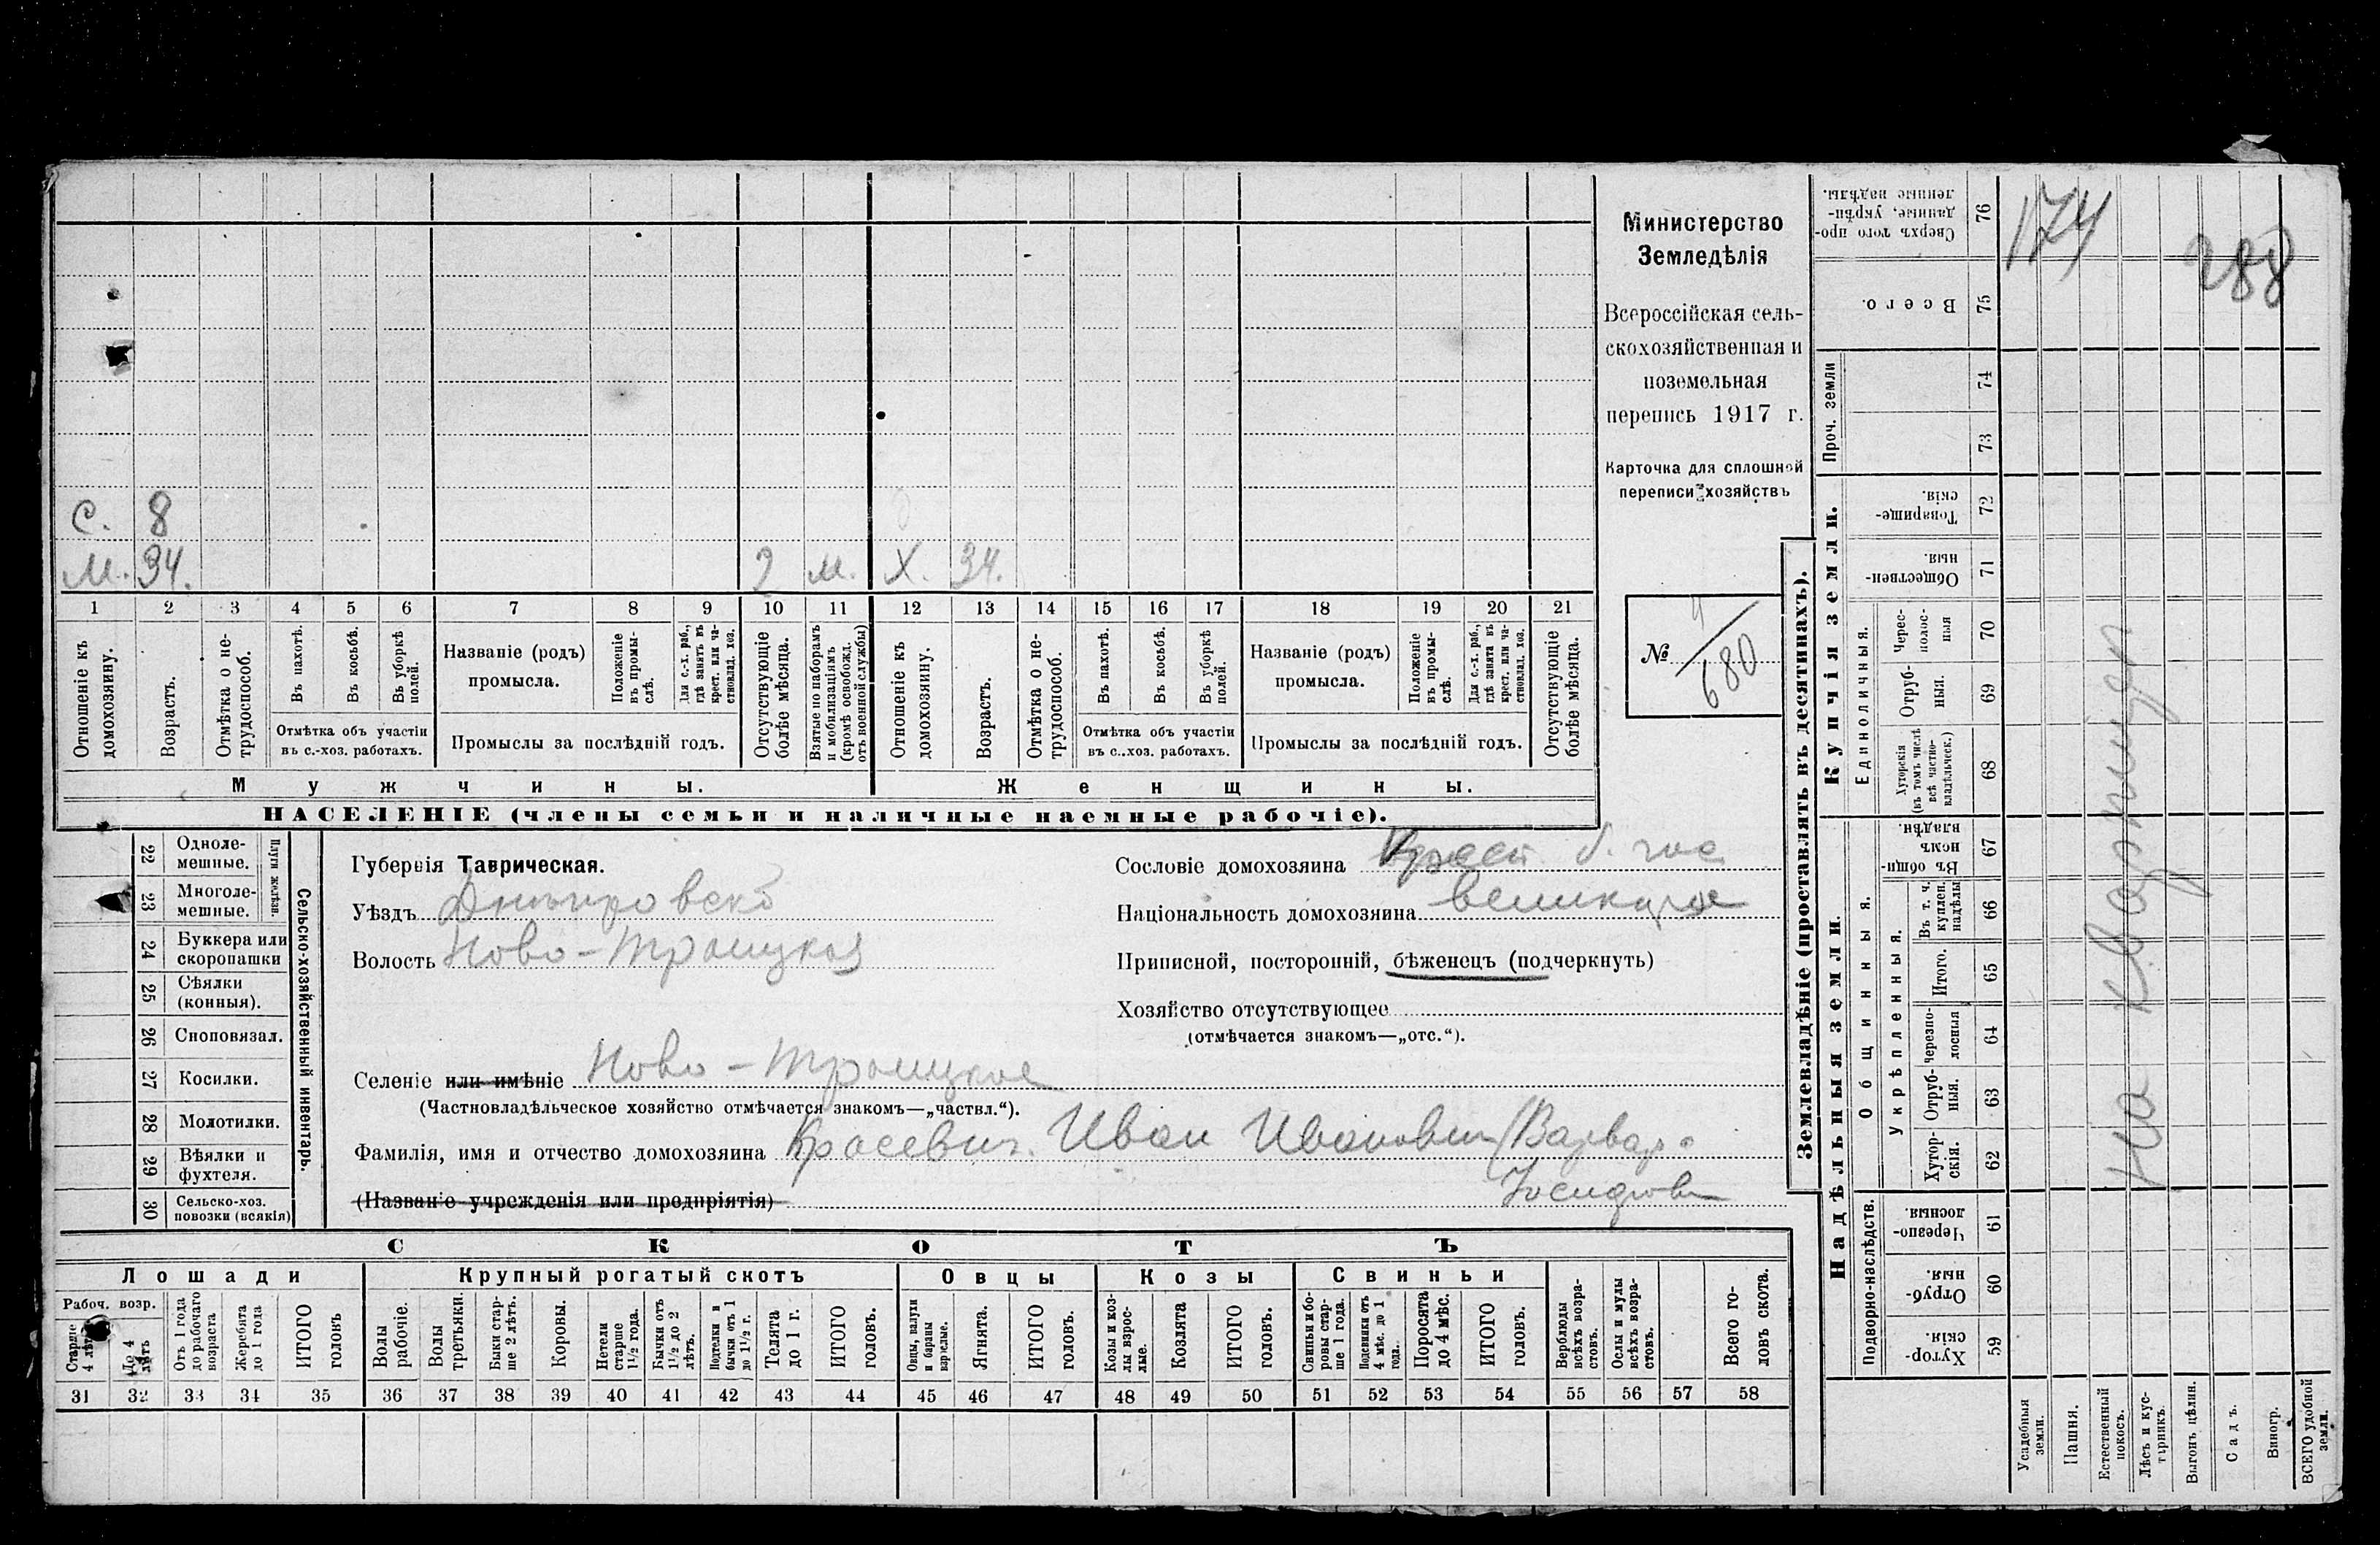 Министерство
Земледѣлія
Всероссійская сель-
скохозяйственная и
поземельная
перепись 1917 г.
Карточка для сплошной
переписи хозяйствъ
№ 4/680
174
288
С. 8
М. 34. 2 м. Х. 34.
1 2 3 4 5 6 7 8 9 10 11 12 13 14 15 16 17 18 19 20 21
Отношеніе къ домохозяину.
Возрастъ.
Отмѣтка о не-трудоспособ.
Въ пахотѣ.
Въ косьбѣ.
Въ уборкѣ полей.
Отмѣтка объ участіи въ с.-хоз. работахъ.
Названіе (родъ) промысла.
Положеніе въ промы-слѣ.
Для с.-х. раб., гдѣ занятъ въ крест. или ча-стновлад. хоз.
Промыслы за послѣдній годъ.
Отсутствующіе болѣе мѣсяца.
Взятые по наборамъ и мобилизаціямъ (кромѣ освобожд. отъ военной службы)
Отношеніе къ домохозяину.
Возрастъ.
Отмѣтка о не-трудоспособ.
Въ пахотѣ.
Въ косьбѣ.
Въ уборкѣ полей.
Отмѣтка объ участіи въ с..хоз. работахъ.
Названіе (родъ) промысла.
Положеніе въ промы-слѣ.
Для с.-х. раб., гдѣ занята въ крест. или ча-стновлад. хоз.
Промыслы за послѣдній годъ.
Отсутствующіе болѣе мѣсяца.
Мужчины.
Женщины.
НАСЕЛЕНІЕ (члены семьи и наличные наемные рабочіе).
22 Одноле-мешные.
23 Многоле-мешные.
Плуги желѣзн.
24 Буккера или скоропашки
25 Сѣялки (конныя).
26 Сноповязал.
27 Косилки.
28 Молотилки.
29 Вѣялки и фухтеля.
30 Сельско-хоз. повозки (всякія)
Сельско-хозяйственный инвентарь.
Губернія Таврическая.
Уѣздъ Днѣпровскій
Волость Ново-Троицкая
Селеніе или имѣніе Ново-Троицкое
(Частновладѣльческое хозяйство отмѣчается знакомъ—„частвл.“).
Фамилія, имя и отчество домохозяина Иван Иванович (Варвара
(Названіе учрежденія или предпріятія) Иосифовн
Сословіе домохозяина Крест. б. гос
Національность домохозяина великор
Приписной, посторонній, бѣженецъ (подчеркнуть)
Хозяйство отсутствующее
(отмѣчается знакомъ—„отс.“).
СКОТЪ
Лошади
Крупный рогатый скотъ
Овцы
Козы
Свиньи
Рабоч. возр.
Старше 4 лѣтъ
До 4 лѣтъ
Отъ 1 года до рабочаго возраста
Жеребята до 1 года
ИТОГО головъ
Волы рабочіе.
Волы третьяки.
Быки стар-ше 2 лѣтъ.
Коровы.
Нетели старше 1 1/2 года.
Бычки отъ 1 1/2 до 2 лѣтъ.
Подтелки и бычки отъ 1 до 1 1/2 г.
Телята до 1 г.
ИТОГО головъ.
Овцы, валухи и бараны взрослые.
Ягнята.
ИТОГО головъ.
Козы и коз-лы взрос-лые.
Козлята
ИТОГО головъ.
Свиньи и бо-ровы стар-ше 1 года.
Подсвинки отъ 4 мѣс. до 1 года.
Поросята до 4 мѣс.
ИТОГО головъ.
Верблюды всѣхъ возра-стовъ.
Ослы и мулы всѣхъ возра-стовъ.
Всего го-ловъ скота.
31 32 33 34 35 36 37 38 39 40 41 42 43 44 45 46 47 48 49 50 51 52 53 54 55 56 57 58
Землевладѣніе (проставлять въ десятинахъ).
Надѣльныя земли.
Купчія земли.
Проч. земли
Подворно-наслѣдств.
Общинныя.
Укрѣпленныя.
Единоличныя.
Хутор-скія. 59
Отруб-ныя. 60
Черезпо-лосныя. 61
Хутор-скія. 62
Отруб-ныя. 63
Черезпо-лосныя 64
Итого. 65
Въ т. ч. куплен. надѣлы 66
Въ общи-номъ владѣн. 67
Хуторскія (въ томъ числѣ всѣ частно-владѣльческ.) 68
Отруб-ныя. 69
Черес-полос-ныя 70
Обществен-ныя. 71
Товарище-скія. 72
73
74
Всего. 75
Сверхъ того про-данные, укрѣп-ленные надѣлы. 76
Усадебныя земли.
Пашня.
Естественный покосъ.
Лѣсъ и кус-тарникъ.
Выгонъ цѣлин.
Садъ.
Виногр.
ВСЕГО удобной земли.
На квартире